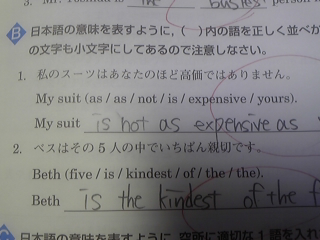 3. Mr. Toshimi is the busiest person
B 日本語の意味を表すように，( )内の語を正しく並べか
の文字も小文字にしてあるので注意しなさい。
1. 私のスーツはあなたのほど高価ではありません。
My suit (as / as / not / is / expensive / yours).
My suit is not as expensive as
2. ベスはその5人の中でいちばん親切です。
Beth (five / is / kindest / of / the / the).
Beth is the kindest of the f
日本語の意味を表すように，空所に適切な1語を入れ